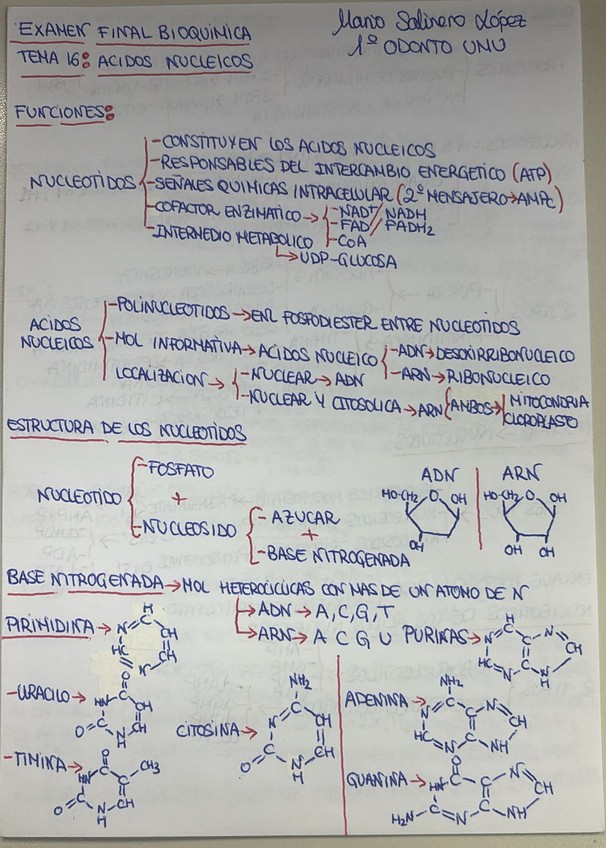 EXAMEN FINAL BIOQUIMICA
Mario Salinero López
1º ODONTO UMU
TEMA 16: ACIDOS NUCLEICOS
FUNCIONES:
NUCLEOTIDOS
-CONSTITUYEN LOS ACIDOS NUCLEICOS
-RESPONSABLES DEL INTERCAMBIO ENERGETICO (ATP)
-SEÑALES QUIMICAS INTRACELULAR (2º MENSAJERO→AMPc)
-COFACTOR ENZIMATICO →
-NAD+/NADH
-FAD/FADH2
-CoA
-INTERMEDIO METABOLICO
→UDP-GLUCOSA
ACIDOS NUCLEICOS
-POLINUCLEOTIDOS→ENL FOSFODIESTER ENTRE NUCLEOTIDOS
-MOL INFORMATIVA→ACIDOS NUCLEICO
-ADN→DESOXIRRIBONUCLEICO
-ARN→RIBONUCLEICO
LOCALIZACION→
-NUCLEAR→ADN
-NUCLEAR Y CITOSOLICA→ARN
AMBOS→
MITOCONDRIA
CLOROPLASTO
ESTRUCTURA DE LOS NUCLEOTIDOS
NUCLEOTIDO
-FOSFATO
+
-NUCLEOSIDO
-AZUCAR
+
-BASE NITROGENADA
ADN
HO-CH2 O OH
OH
ARN
HO-CH2 O OH
OH OH
BASE NITROGENADA→MOL HETEROCICLICAS CON MAS DE UN ATOMO DE N
→ADN→A, C, G, T
→ARN→A C G U
PIRIMIDINA→
H
N C CH
HC N CH
PURINAS→
H
N C C N
CH
HC N C N
H
-URACILO→
O
HN C CH
O C N CH
H
CITOSINA→
NH2
N C CH
O C N CH
H
ADENINA→
NH2
N C C N
CH
HC N C NH
-TIMINA→
O
HN C C CH3
O C N CH
H
GUANINA→
O
HN C C N
CH
H2N C N C NH